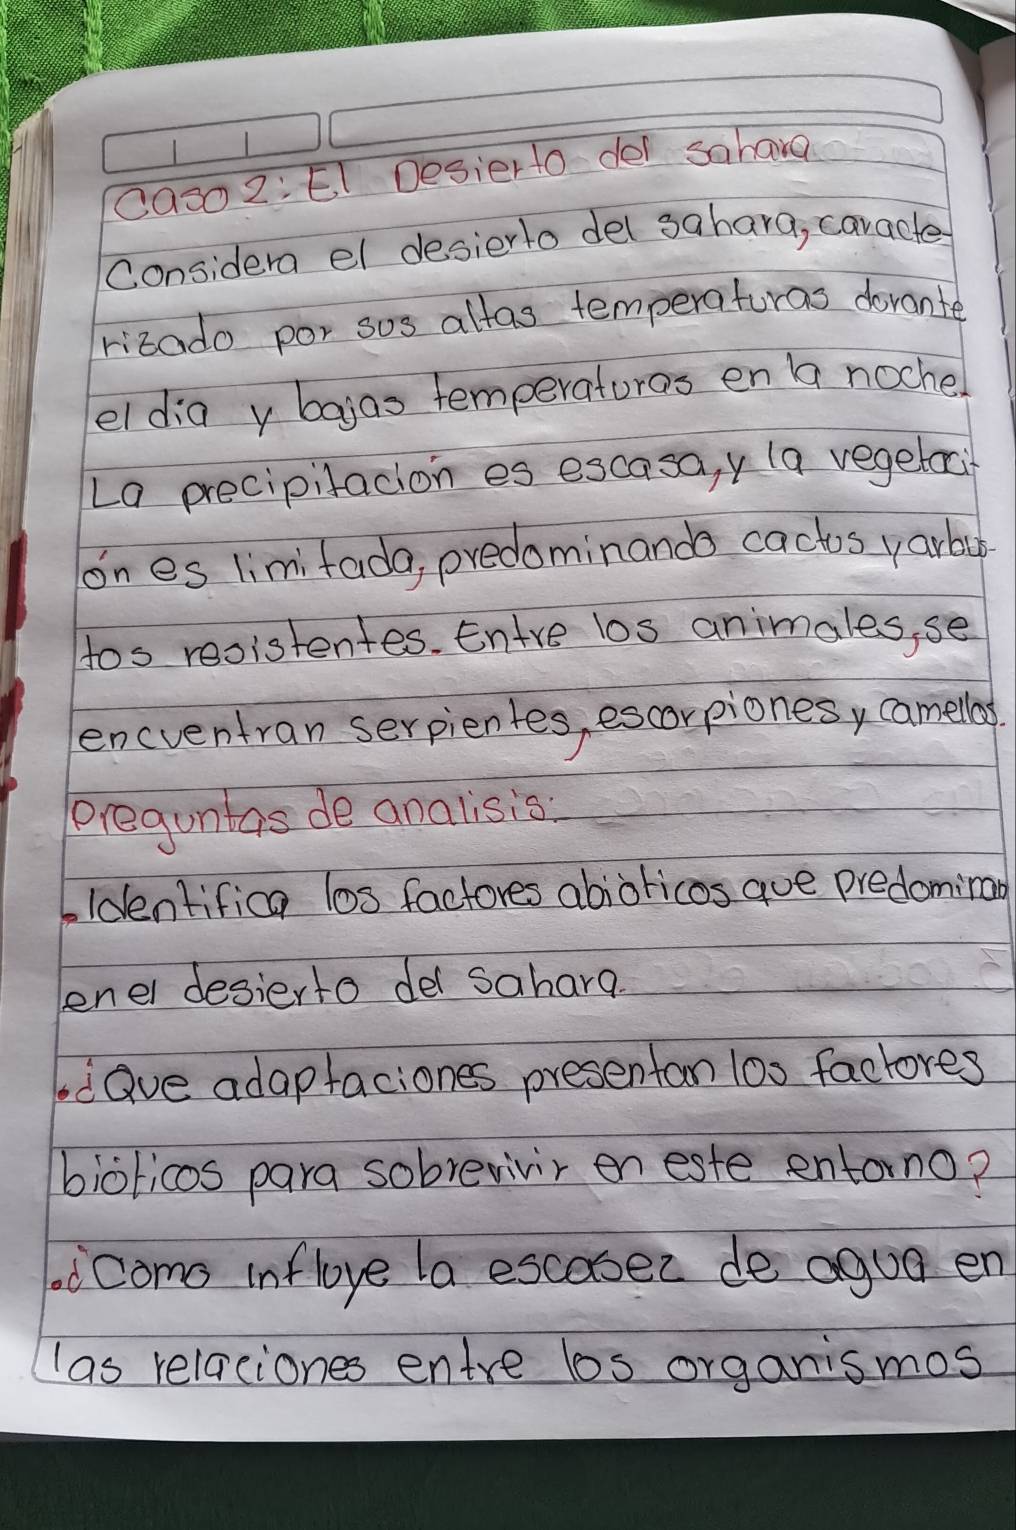 caso 2: El Desierto del sahara
Considera el desierto del sahara, caracte-
rizado por sus altas temperaturas durante
el dia y bajas temperaturas en la noche.
La precipitación es escasa, y la vegetaci-
ón es limitada, predominando cactus y arbus-
tos resistentes. Entre los animales, se
encuentran serpientes, escorpiones y camellos.
preguntas de analisis:
• Identifica los factores abióticos que predominan
en el desierto del sahara.
• ¿Que adaptaciones presentan los factores
bióticos para sobrevivir en este entorno?
• ¿Como influye la escasez de agua en
las relaciones entre los organismos